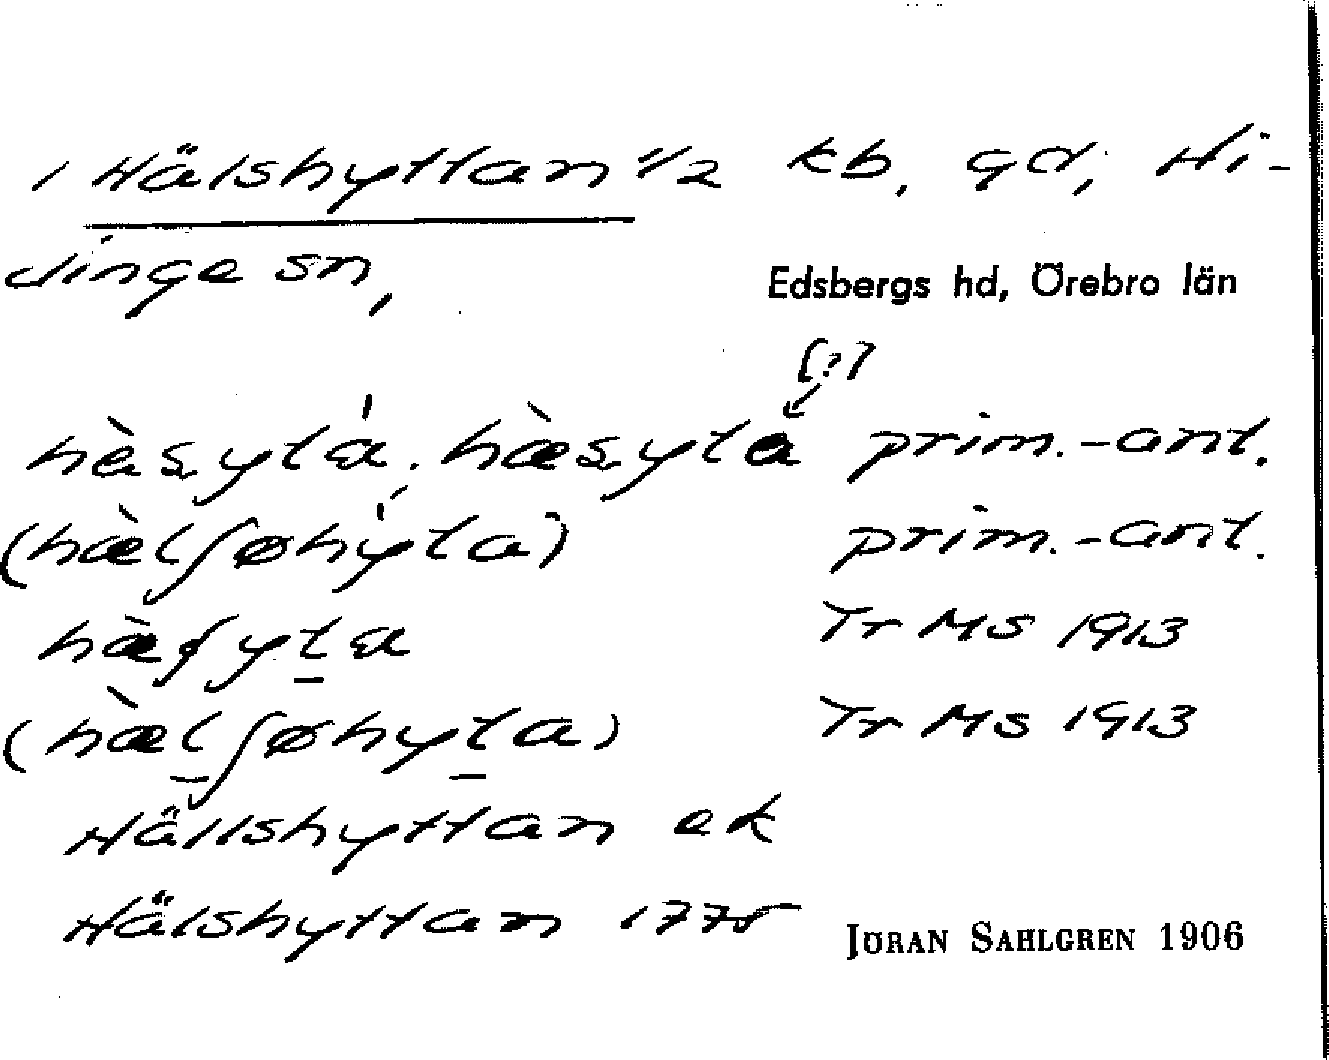 1 Hälshyttan 1/2 kb, gd, Hi-
dinge sn,
Edsbergs hd, Örebro län
[?]
hæ̀s.yta, hæ̀s.yta prim.-ant.
(hæ̀lʃøhyta) prim.-ant.
hæ̀ʃyta Tr MS 1913
(hæ̀lʃøhyta) Tr MS 1913
Hällshyttan ek
Hälshyttan 1775
JÖRAN SAHLGREN 1906